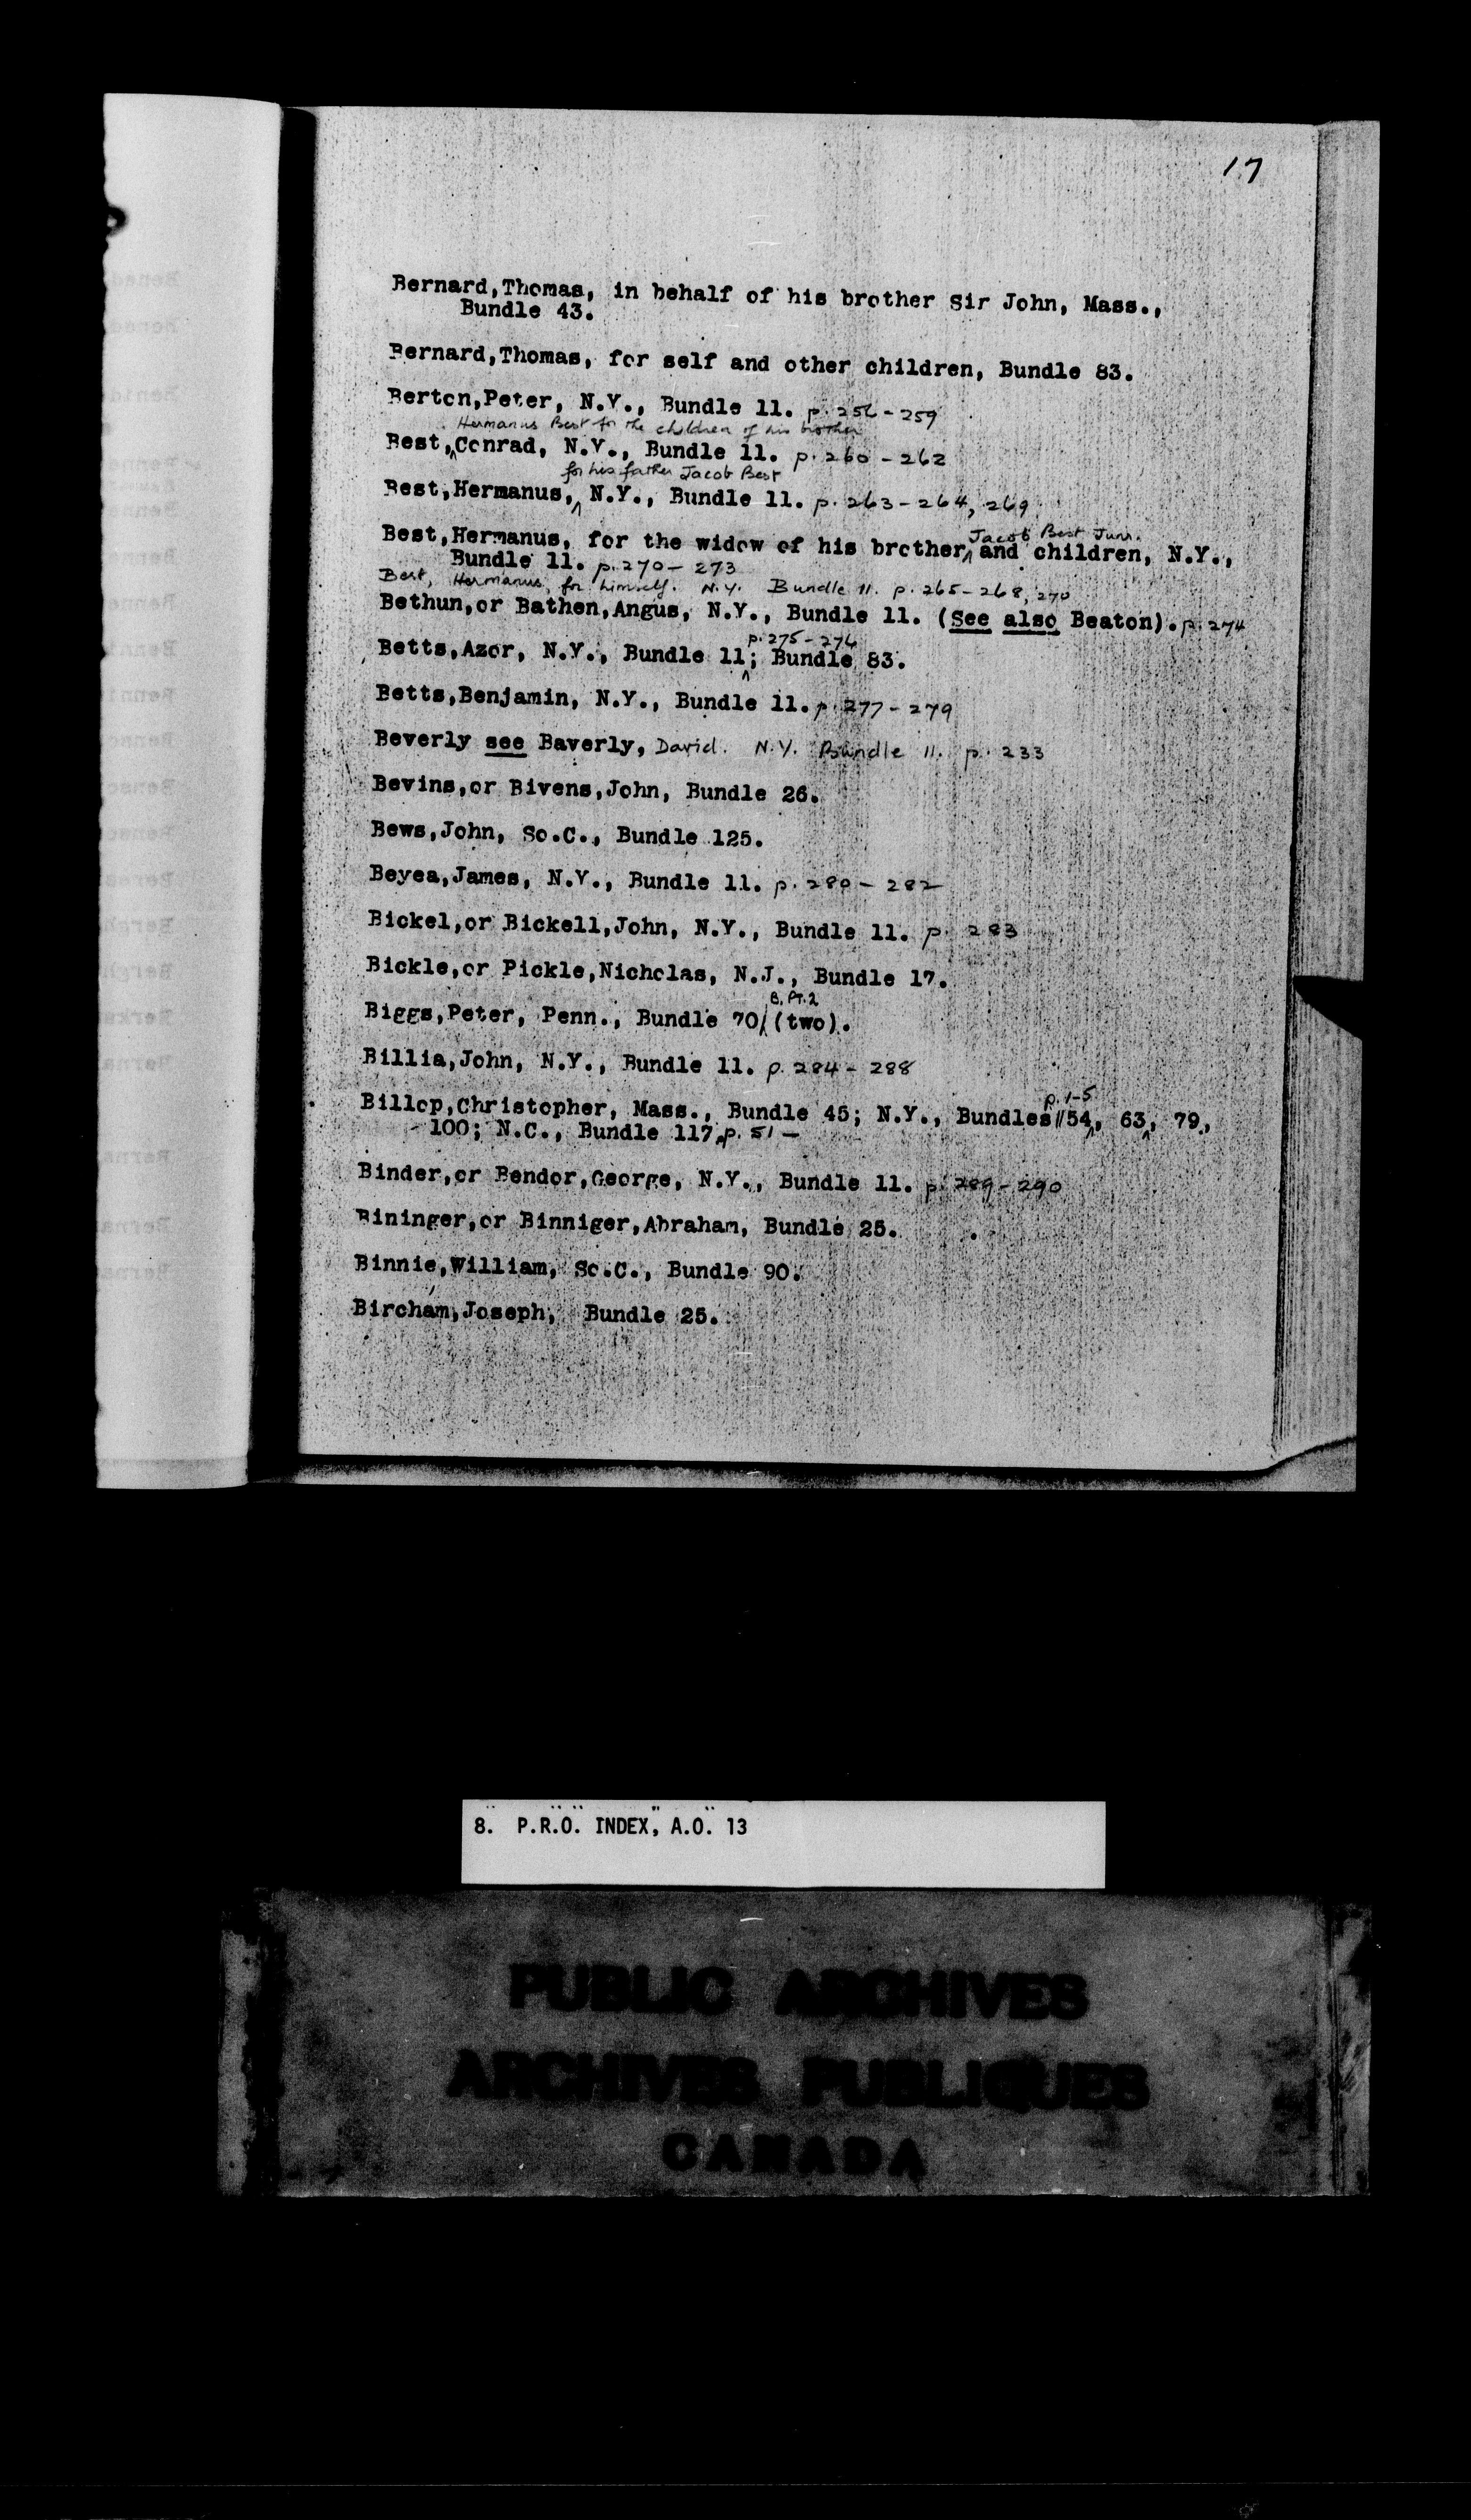 17
Bernard,Thomas, in behalf of his brother Sir John, Mass.,
Bundle 43.
Bernard,Thomas, for self and other children, Bundle 83.
Berton,Peter, N.Y., Bundle 11. p. 256-259
Hermanus Best for the children of his brother
Best,^Conrad, N.Y., Bundle 11. p. 260-262
for his father Jacob Best
Best,Hermanus,^ N.Y., Bundle 11. p. 263-264, 269
Jacob Best Junr.
Best,Hermanus, for the widow of his brother^ and children, N.Y.,
Bundle 11. p. 270-273
Best, Hermanus, for himself. N.Y. Bundle 11. p. 265-268, 270
Bethun,or Bathen,Angus, N.Y., Bundle 11. (See also Beaton). p. 274
p. 275-276
Betts,Azor, N.Y., Bundle 11^; Bundle 83.
Betts,Benjamin, N.Y., Bundle 11. p. 277-279
Beverly see Baverly, David. N.Y. Bundle 11. p. 233
Bevins,or Bivens,John, Bundle 26.
Bews,John, So.C., Bundle 125.
Beyea,James, N.Y., Bundle 11. p. 280-282
Bickel,or Bickell,John, N.Y., Bundle 11. p. 283
Bickle,or Pickle,Nicholas, N.J., Bundle 17.
B, Pt. 2
Biggs,Peter, Penn., Bundle 70/(two).
Billia,John, N.Y., Bundle 11. p. 284-288
p. 1-5
Billop,Christopher, Mass., Bundle 45; N.Y., Bundles 54^, 63^, 79,
100; N.C., Bundle 117. p. 51-
Binder,or Bendor,George, N.Y., Bundle 11. p. 289-290
Bininger,or Binniger,Abraham, Bundle 25.
Binnie,William, So.C., Bundle 90.
Bircham,Joseph, Bundle 25.
8. P.R.O. INDEX, A.O. 13
PUBLIC ARCHIVES
ARCHIVES PUBLIQUES
CANADA